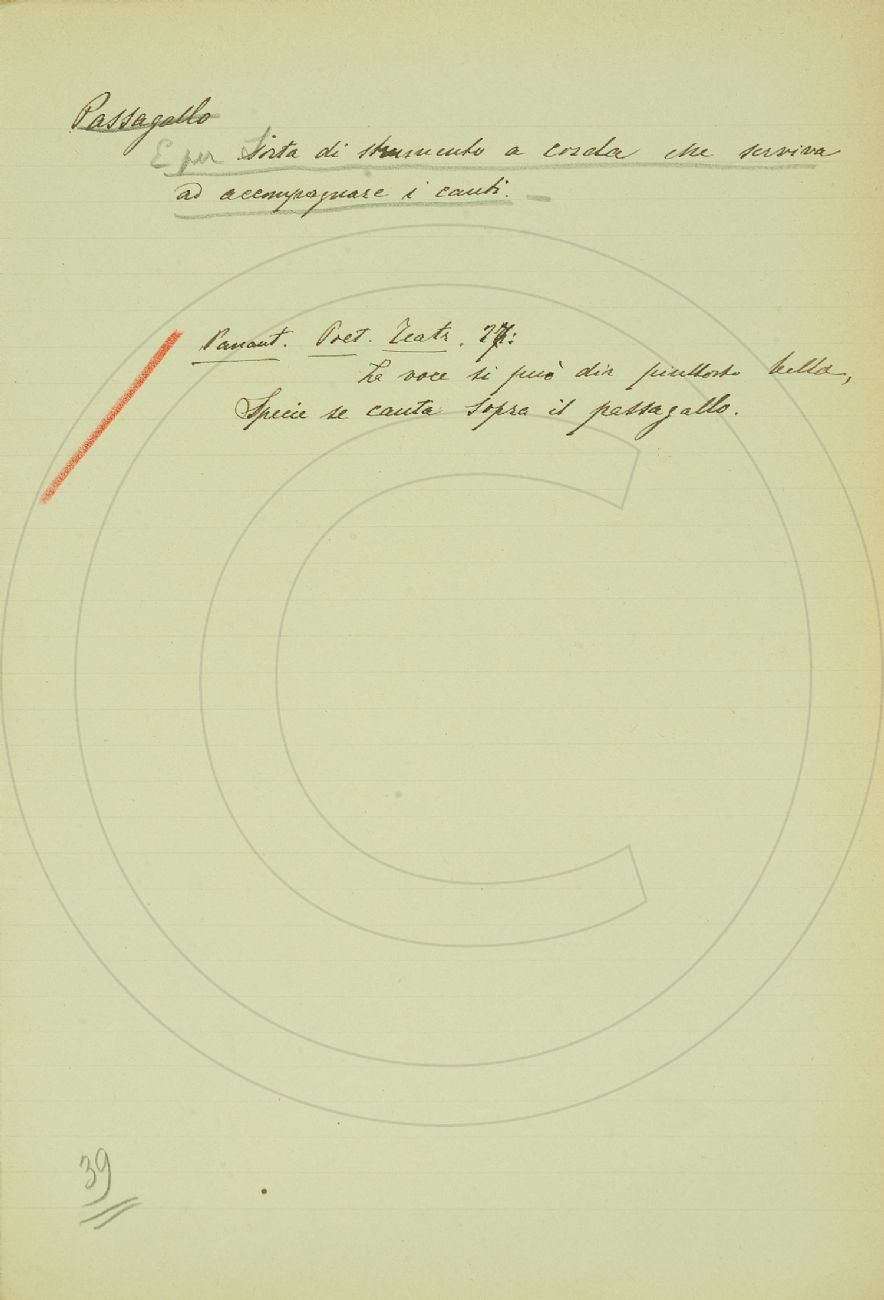 Passagallo
E per Sorta di strumento a corda che serviva
ad accompagnare i canti. —
Panant. Poet. Teatr. 27:
La voce si può dir piuttosto bella,
Specie se canta sopra il passagallo.
39